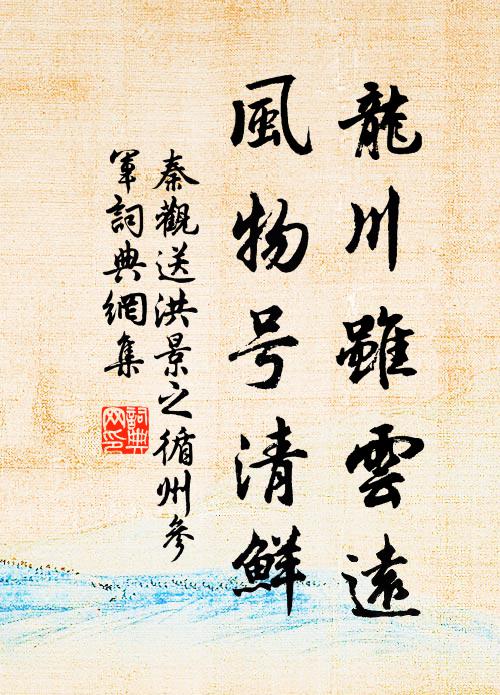 龍川雖雲遠
風物号清鮮
秦觀送洪景之循州參
軍詞典網集
詞典
网印